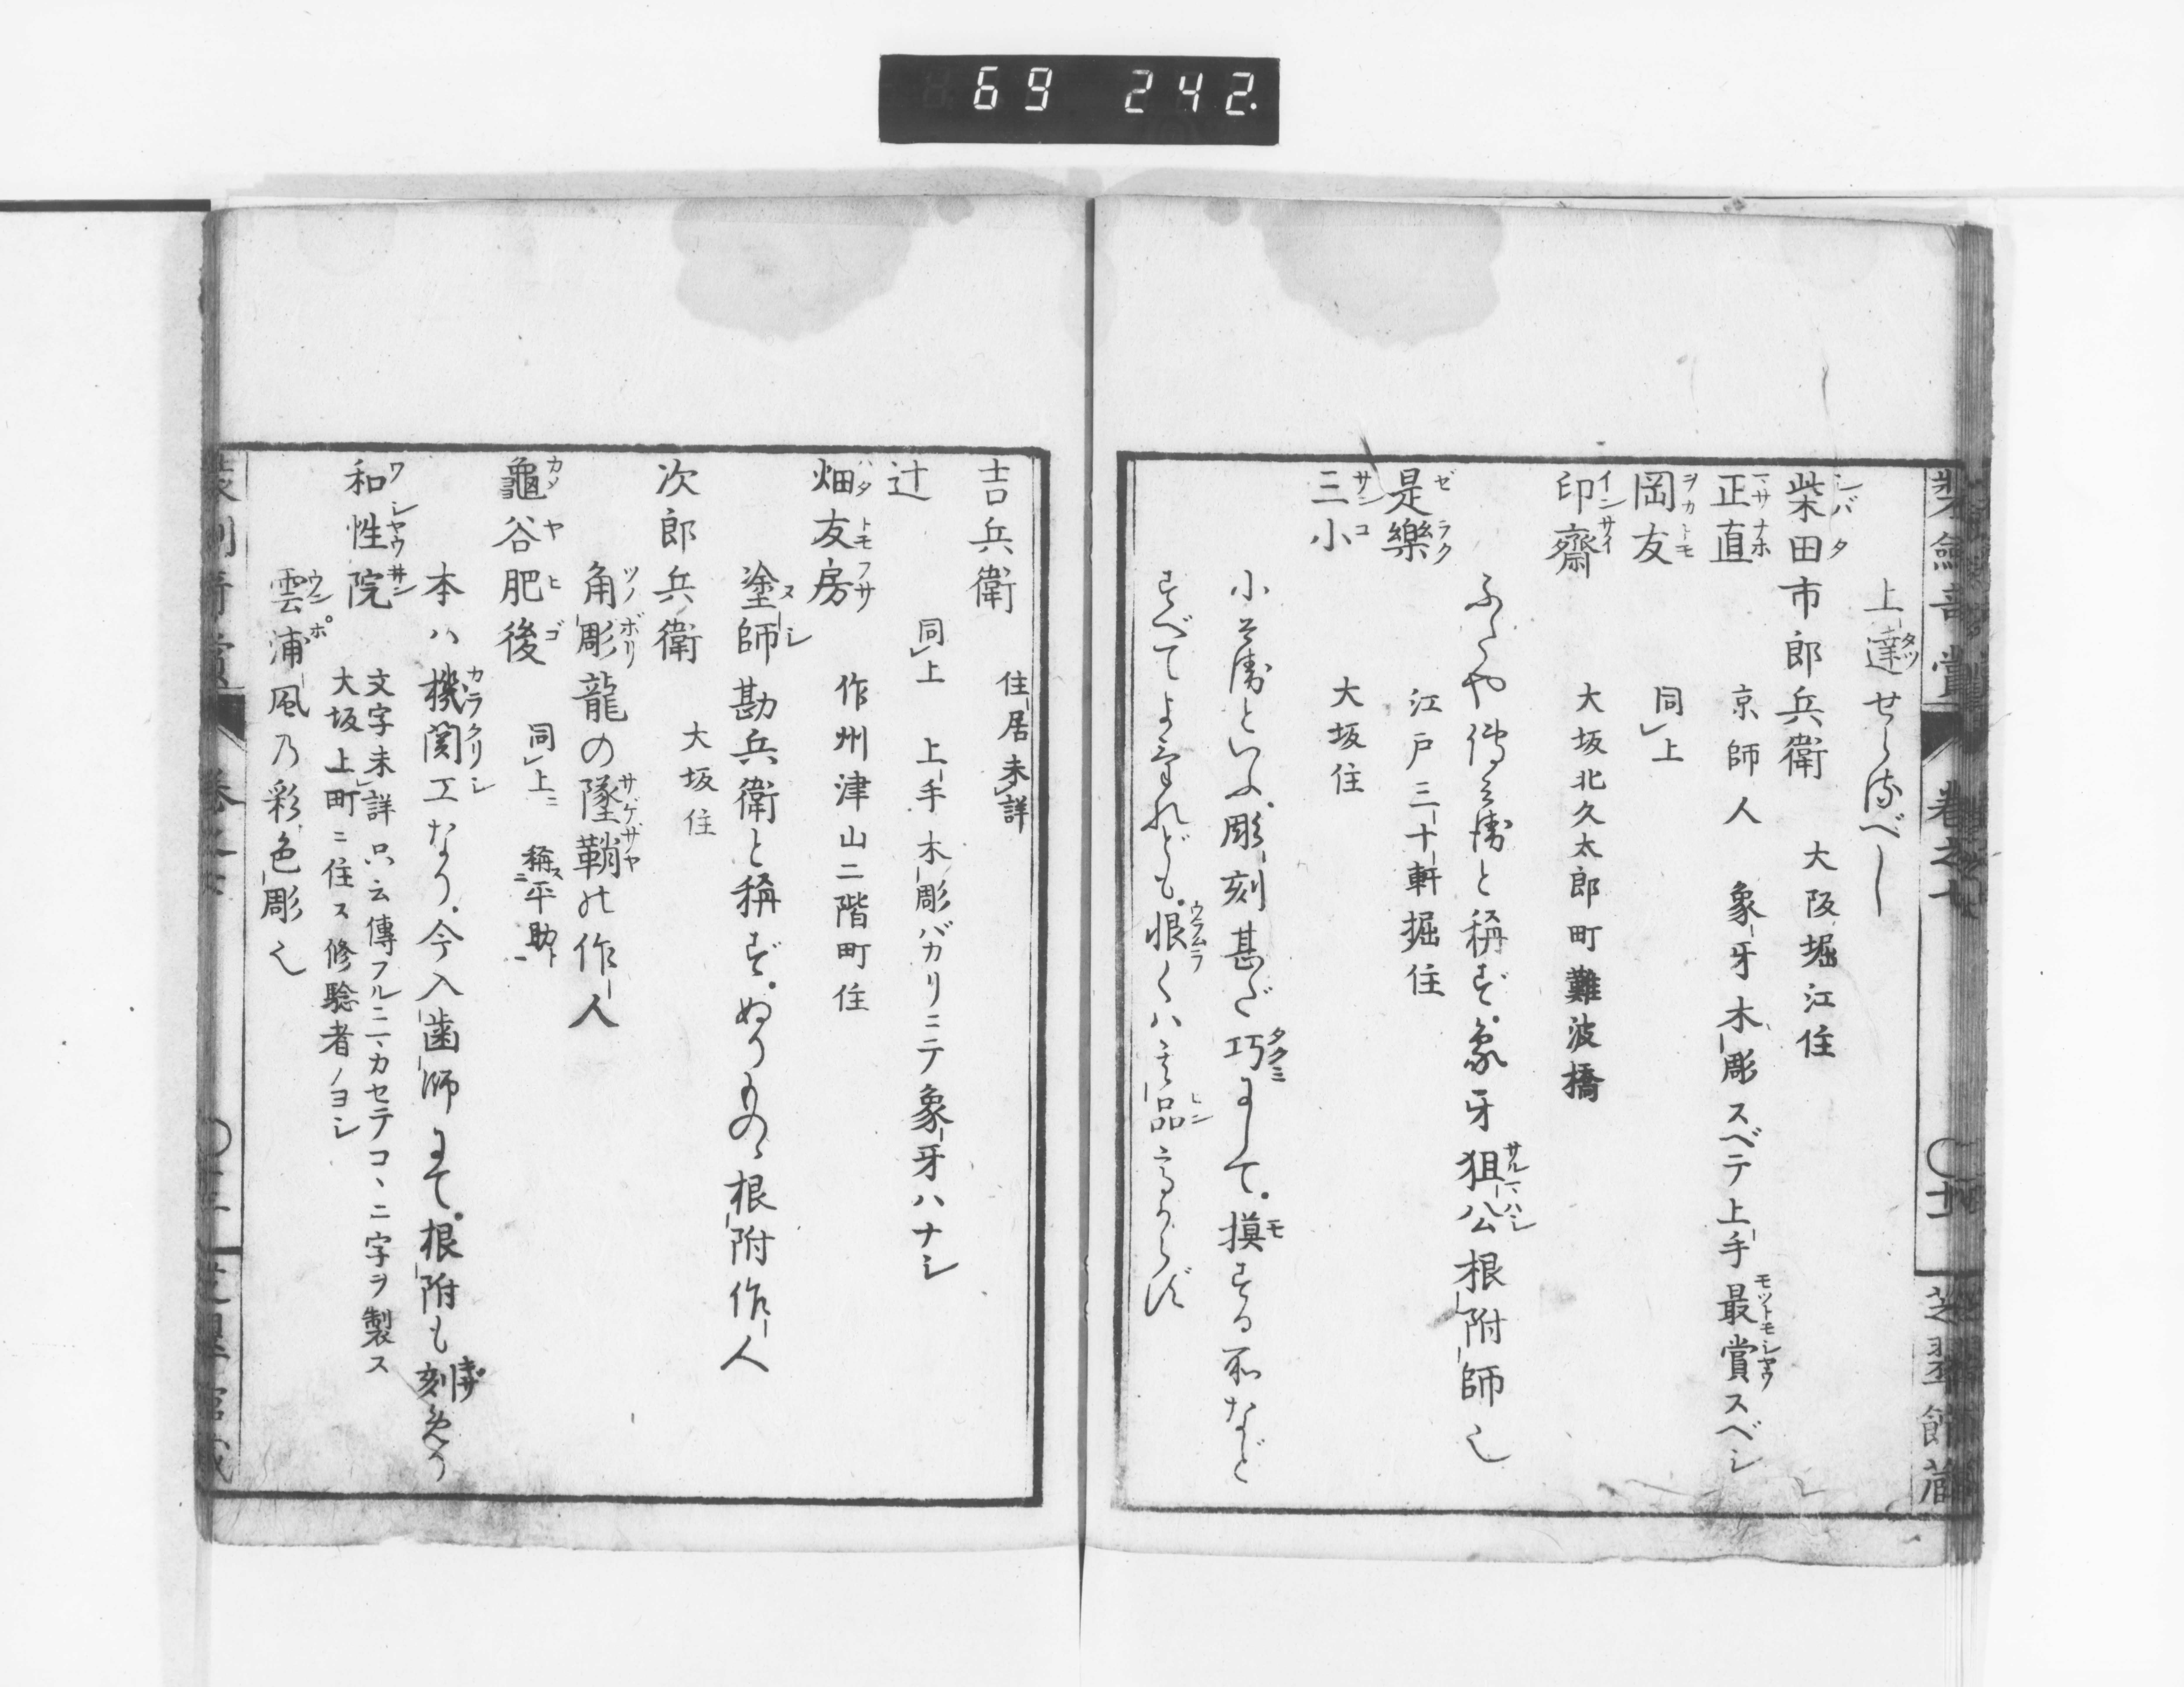 69 242.
上達せらるべし
柴田市郎兵衛 大阪堀江住
正直 京師人 象牙木彫スベテ上手最賞スベシ
岡友 同上
印齋 大坂北久太郎町難波橋
ふくや傳兵衛と稱す。象牙狙公根附師也
是樂 江戸三十軒掘住
三小 大坂住
小兵衛といふ。彫刻甚だ巧にして。摸する所など
すべてよろしけれども。恨くハ其品高からず
吉兵衛 住居未詳
辻 同上 上手木彫バカリニテ象牙ハナシ
畑友房 作州津山二階町住
塗師勘兵衛と稱す。ぬりもの、根附作人
次郎兵衛 大坂住
角彫龍の墜鞘の作人
龜谷肥後 同上ニ 稱ス平助ト
本ハ機関工なり。今入歯師にて。根附も刻めり
和性院 文字未詳只云傳フルニマカセテコヽニ字ヲ製ス
大坂上町ニ住ス修驗者ノヨシ
雲浦風乃彩色彫也